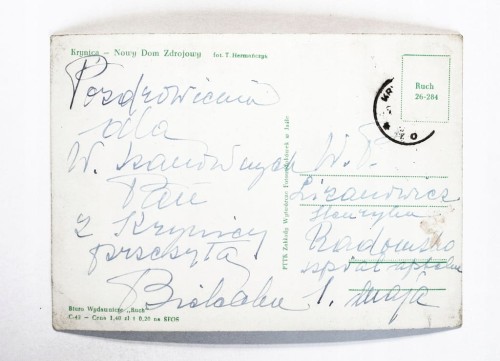 Krynica – Nowy Dom Zdrojowy fot. T. Hermańczyk
Pozdrowienia
dla
W. Szanownych
Pań
z Krynicy
przesyła
Biuro Wydawnicze „Ruch”
C-42 – Cena 1,40 zł + 0,20 na SFOS
PTTK Zakłady Wytwórcze Pamiątkarskich w Łodzi
Ruch
26-284
KR
W. P.
Lizanowicz
Henryka
Radomsko
1. Maja